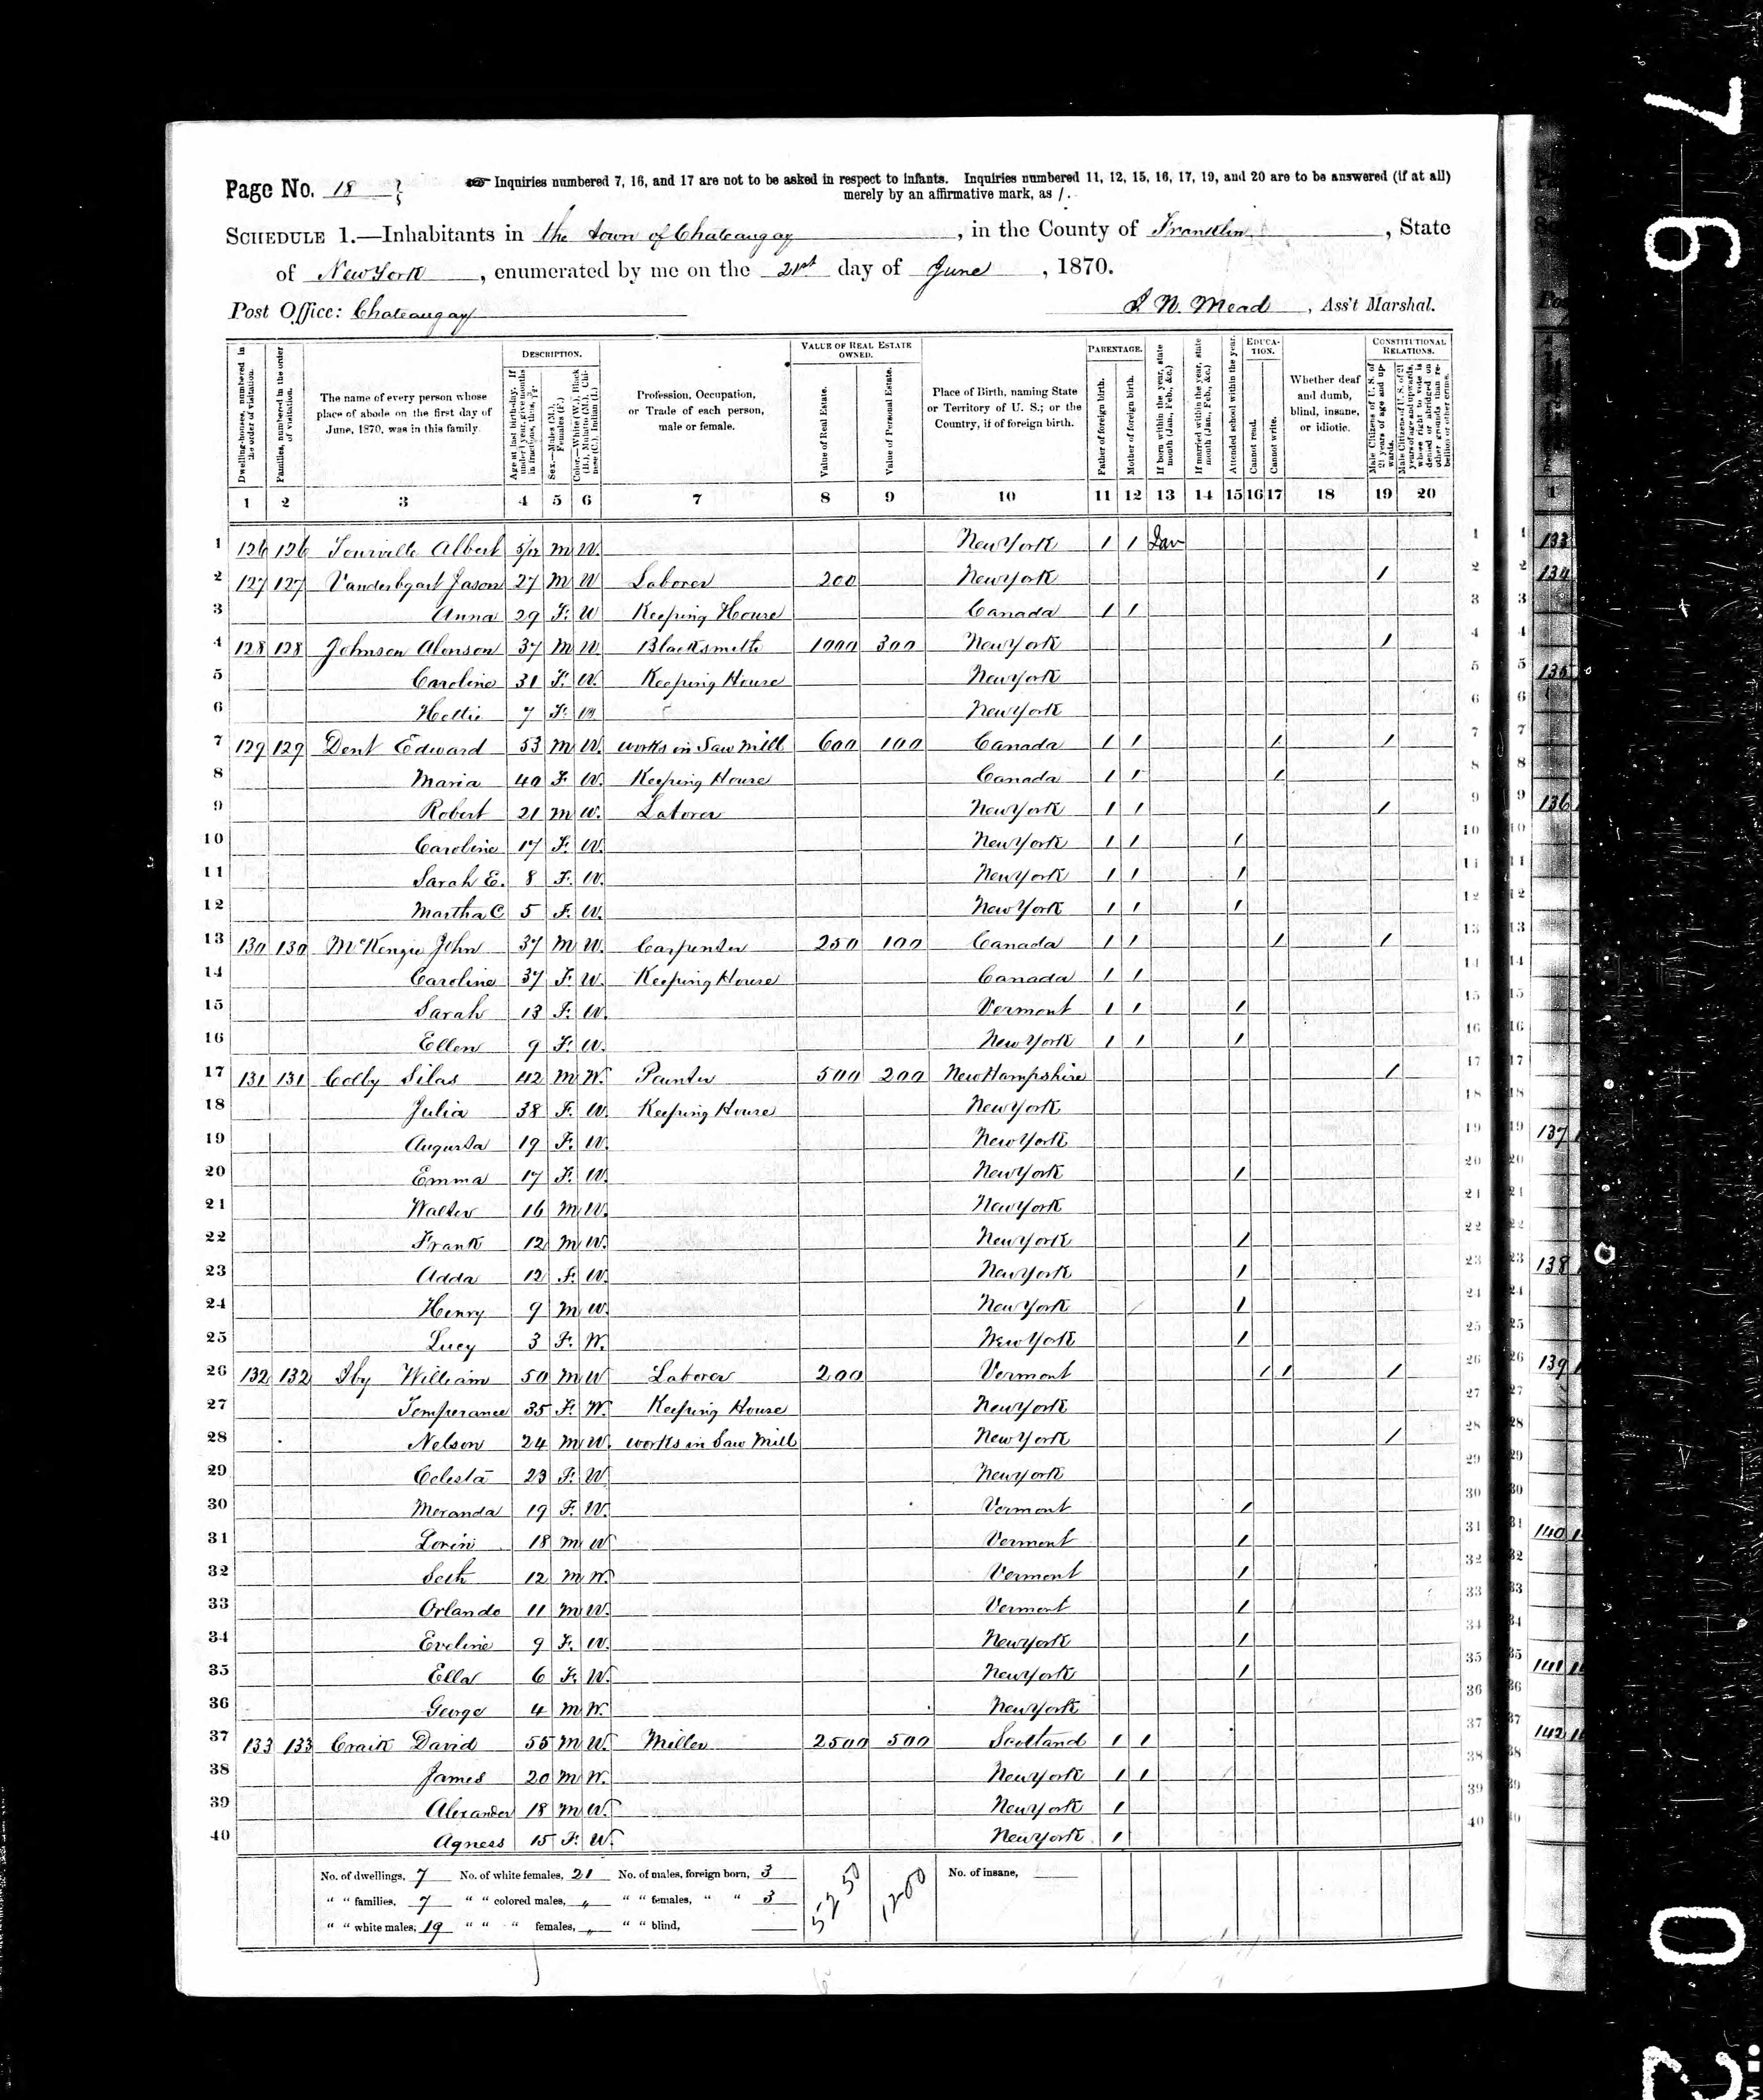 Page No. 18
☞ Inquiries numbered 7, 16, and 17 are not to be asked in respect to infants. Inquiries numbered 11, 12, 15, 16, 17, 19, and 20 are to be answered (if at all)
merely by an affirmative mark, as /.
SCHEDULE 1.—Inhabitants in the town of Chateaugay, in the County of Franklin, State
of New York, enumerated by me on the 21st day of June, 1870.
Post Office: Chateaugay
Mead, Ass't Marshal.
Dwelling-houses, numbered in the order of visitation.
Families, numbered in the order of visitation.
The name of every person whose place of abode on the first day of June, 1870, was in this family.
DESCRIPTION.
Age at last birth-day. If under 1 year, give months in fractions, thus, 3/12.
Sex.—Males (M.), Females (F.)
Color.—White (W.), Black (B.), Mulatto (M.), Chinese (C.), Indian (I.)
Profession, Occupation, or Trade of each person, male or female.
VALUE OF REAL ESTATE OWNED.
Value of Real Estate.
Value of Personal Estate.
Place of Birth, naming State or Territory of U. S.; or the Country, if of foreign birth.
PARENTAGE.
Father of foreign birth.
Mother of foreign birth.
If born within the year, state month (Jan., Feb., &c.)
If married within the year, state month (Jan., Feb., &c.)
Attended school within the year.
EDUCATION.
Cannot read.
Cannot write.
Whether deaf and dumb, blind, insane, or idiotic.
CONSTITUTIONAL RELATIONS.
Male Citizens of U. S. of 21 years of age and upwards.
Male Citizens of U. S. of 21 years of age and upwards, whose right to vote is denied or abridged on other grounds than rebellion or other crime.
1 2 3 4 5 6 7 8 9 10 11 12 13 14 15 16 17 18 19 20
1 126 126 Tourville Albert 5/12 M W. New York / / Jan 1
2 127 127 Jason 27 M W Laborer 200 New York / 2
3 Anna 29 F. W Keeping House Canada / / 3
4 128 128 Johnson Alonson 37 M W Blacksmith 1000 300 New York / 4
5 Caroline 31 F. W. Keeping House New York 5
6 Hettie 7 F. W New York 6
7 129 129 Dent Edward 53 M W. works in Saw Mill 600 100 Canada / / / / 7
8 Maria 40 F. W. Keeping House Canada / / / 8
9 Robert 21 M W. Laborer New York / / / 9
10 Caroline 17 F. W. New York / / / 10
11 Sarah E. 8 F. W. New York / / / 11
12 Martha C 5 F. W. New York / / / 12
13 130 130 McKenzie John 37 M W. Carpenter 250 100 Canada / / / / 13
14 Caroline 37 F. W. Keeping House Canada / / 14
15 Sarah 13 F. W. Vermont / / / 15
16 Ellen 9 F. W. New York / / / 16
17 131 131 Colby Silas 42 M W. Painter 500 200 New Hampshire / 17
18 Julia 38 F. W. Keeping House New York 18
19 Augusta 19 F. W. New York 19
20 Emma 17 F. W. New York / 20
21 Walter 16 M W. New York 21
22 Frank 12 M W. New York / 22
23 Adda 12 F. W. New York / 23
24 Henry 9 M W. New York / 24
25 Lucy 3 F. W. New York / 25
26 132 132 William 50 M W Laborer 200 Vermont / / / 26
27 Temperance 35 F. W. Keeping House New York 27
28 Nelson 24 M W. works in Saw Mill New York / 28
29 Celesta 23 F. W. New York 29
30 Meranda 19 F. W. Vermont / 30
31 Lorin 18 M W Vermont / 31
32 Seth 12 M W. Vermont / 32
33 Orlando 11 M W. Vermont / 33
34 Eveline 9 F. W. New York / 34
35 Ella 6 F. W. New York / 35
36 George 4 M W. New York 36
37 133 133 Craik David 55 M W. Miller 2500 500 Scotland / / 37
38 James 20 M W. New York / / 38
39 Alexander 18 M W. New York / 39
40 Agness 15 F. W. New York / 40
No. of dwellings, 7 No. of white females, 21 No. of males, foreign born, 3 5250 1200 No. of insane,
" " families, 7 " " colored males, " " " females, " " 3
" " white males, 19 " " " females, " " " blind,
1
133
134
135
136
137
138
139
140
141
142